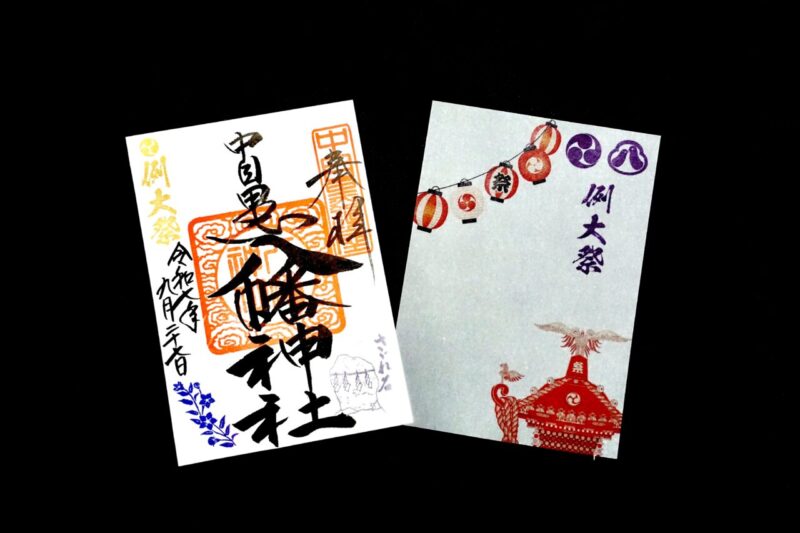 奉拝
中目黒八幡神社
例大祭
令和七年
九月二十日
さゞれ石
八
例大祭
祭
祭